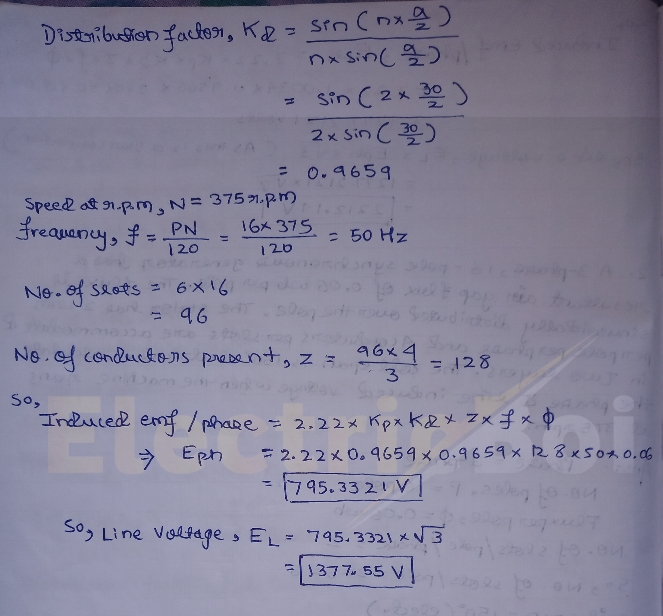 Distribution factor, Kd = sin (n × α/2) / n × sin (α/2)
= sin (2 × 30/2) / 2 × sin (30/2)
= 0.9659
Speed at r.p.m, N = 375 r.p.m
frequency, f = PN/120 = 16 × 375/120 = 50 Hz
No. of slots = 6 × 16
= 96
No. of conductors present, z = 96 × 4/3 = 128
So,
Induced emf / phase = 2.22 × Kp × Kd × z × f × ϕ
⇒ Eph = 2.22 × 0.9659 × 0.9659 × 128 × 50 × 0.06
= 795.3321 V
So, Line Voltage, EL = 795.3321 × √3
= 1377.55 V